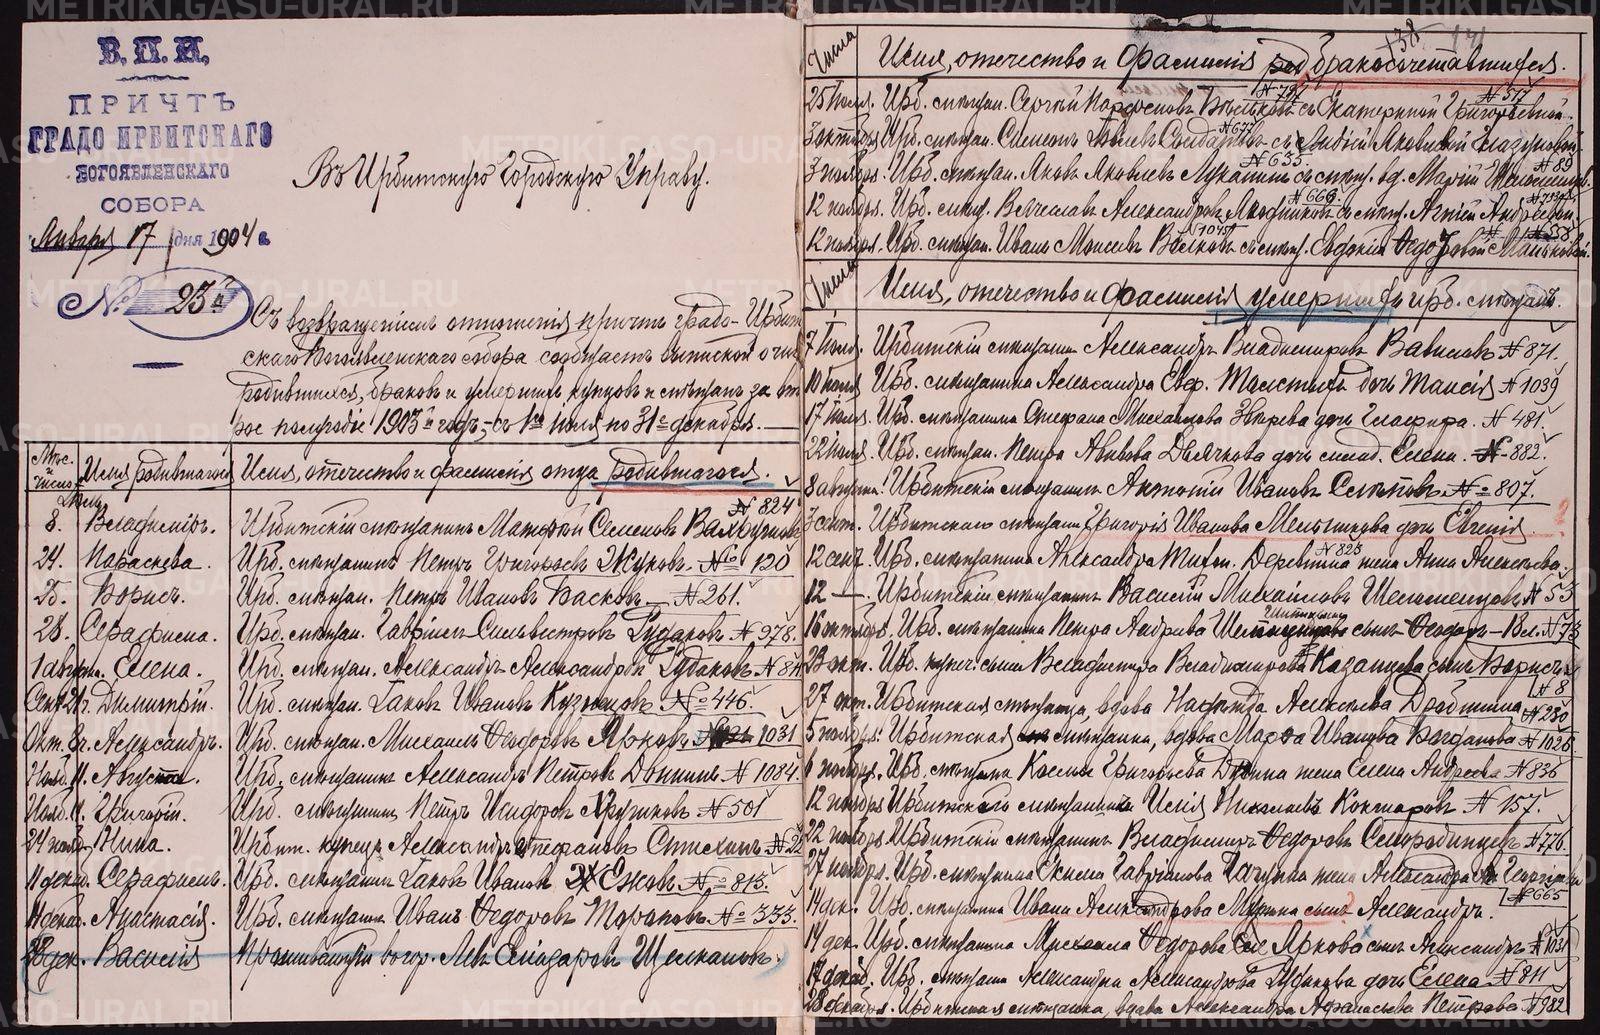 В.П.И.
ПРИЧТЪ
ГРАДО ИРБИТСКАГО
БОГОЯВЛЕНСКАГО
СОБОРА
Января 17 дня 1904 г.
№ 23й
Въ Ирбитскую Городскую Управу.
Съ возвращеніемъ отношенія причтъ градо-Ирбит
скаго Богоявленскаго собора сообщаетъ выпиской о числ
родившихся, браковъ и умершихъ купцовъ и мѣщанъ за вто
рое полугодіе 1903го годъ, съ 1го іюля по 31е декабря.
Мѣс. и число | Имя родившагося | Имя, отчество и фамилія отца родившагося.
Іюль
8. Владиміръ. Ирбитскій мѣщанинъ Матфей Семеновъ № 824
24. Параскева. Ирб. мѣщанинъ Петръ Григорьевъ Жуковъ. № 120
25. Борисъ. Ирб. мѣщан. Петръ Ивановъ Басковъ № 261.
28. Серафима. Ирб. мѣщан. Гавріилъ Сильвестровъ Рудаковъ № 978.
1 августа. Елена. Ирб. мѣщан. Александръ Александровъ Рудаковъ. № 811
Сент. 21. Димитрій. Ирб. мѣщан. Іаковъ Ивановъ Кузнецовъ № 446.
Окт. 8. Александръ. Ирб. мѣщан. Михаилъ Ѳеодоровъ Ярковъ 1031
Нояб. 11. Августа. Ирб. мѣщанинъ Александръ Петровъ № 1084.
Нояб. 11. Григорій. Ирб. мѣщанинъ Петръ Исидоровъ № 501
24 нояб. Нина. Ирбит. купецъ Александръ Стефановъ
11 декаб. Серафимъ. Ирб. мѣщанинъ Іаковъ Ивановъ Ежовъ № 815.
14 декаб. Анастасія. Ирб. мѣщанинъ Иванъ Ѳедоровъ Тороповъ № 333.
28 дек. Василій Лев Елиазаровъ Щелкановъ.
138
Числа | Имя, отчество и фамилія бракосочетавшихся.
25 іюля. Ирб. мѣщан. Сергѣй съ Екатериной Григорьевной № 517
3 октября. Ирб. мѣщан. Симеонъ съ Лидіей Яковлевой
3 ноября. Ирб. мѣщан. Яковъ Яковлевъ № 635. съ мѣщ. вд. Маріей № 89
12 ноября. Ирб. мѣщ. Вячеславъ Александровъ № 666. съ мѣщ. Агніей Андреевой
12 ноября. Ирб. мѣщан. Иванъ Моисеевъ съ мѣщ. Евдокіей Ѳедоровой № 58
Числа | Имя, отчество и фамилія умершихъ ирб. мѣщанъ.
7 іюля. Ирбитскій мѣщанинъ Александръ Владиміровъ Вавиловъ № 871.
10 іюля Ирб. мѣщанина Александра Евф. Толстыхъ дочь Таисія № 1039
17 іюля. Ирб. мѣщанина Стефана Михайлова Звѣрева дочь Глафира. № 481.
22 іюля. Ирб. мѣщан. Петра Авивова Дьячкова дочь млад. Елена. № 882.
8 августа. Ирбитскій мѣщанинъ Антоній Ивановъ № 807.
3 сент. Ирбитскаго мѣщанина Григорія Иванова Мельникова дочь Евгенія.
12 сент. Ирб. мѣщанина Александра № 823 жена Анна Алексѣева.
12 — . Ирбитскій мѣщанинъ Василій Михайловъ № 53
16 октября. Ирб. мѣщанина Петра Андреева сынъ Ѳеодоръ № 73
23 окт. Ирб. купеч. сына Владиміра Владимірова Казанцева сынъ Борисъ № 8
27 окт. Ирбитская мѣщанка, вдова Надежда Алексѣева Дробинина № 230
5 ноября. Ирбитская мѣщанка, вдова Марѳа Иванова Богданова № 1026
6 ноября. Ирб. мѣщанина Козьмы Григорьева жена Елена Андреева № 836
12 ноября Ирбитскій мѣщанинъ Илія Николаевъ № 157.
22 ноября. Ирбитскій мѣщанинъ Владиміръ Ѳедоровъ № 776.
27 ноября. Ирб. мѣщанина Гавріилова жена Александра № 665
14 дек. Ирб. мѣщанина Ивана Александрова сынъ Александръ.
14 дек. Ирб. мѣщанина Михаила Ѳедорова Яркова сынъ Александръ № 1031
17 декаб. Ирб. мѣщанина Александра Александрова Рудакова дочь Елена № 811
28 декабря. Ирбитская мѣщанка, вдова Александра Афанасьева Петрова № 982